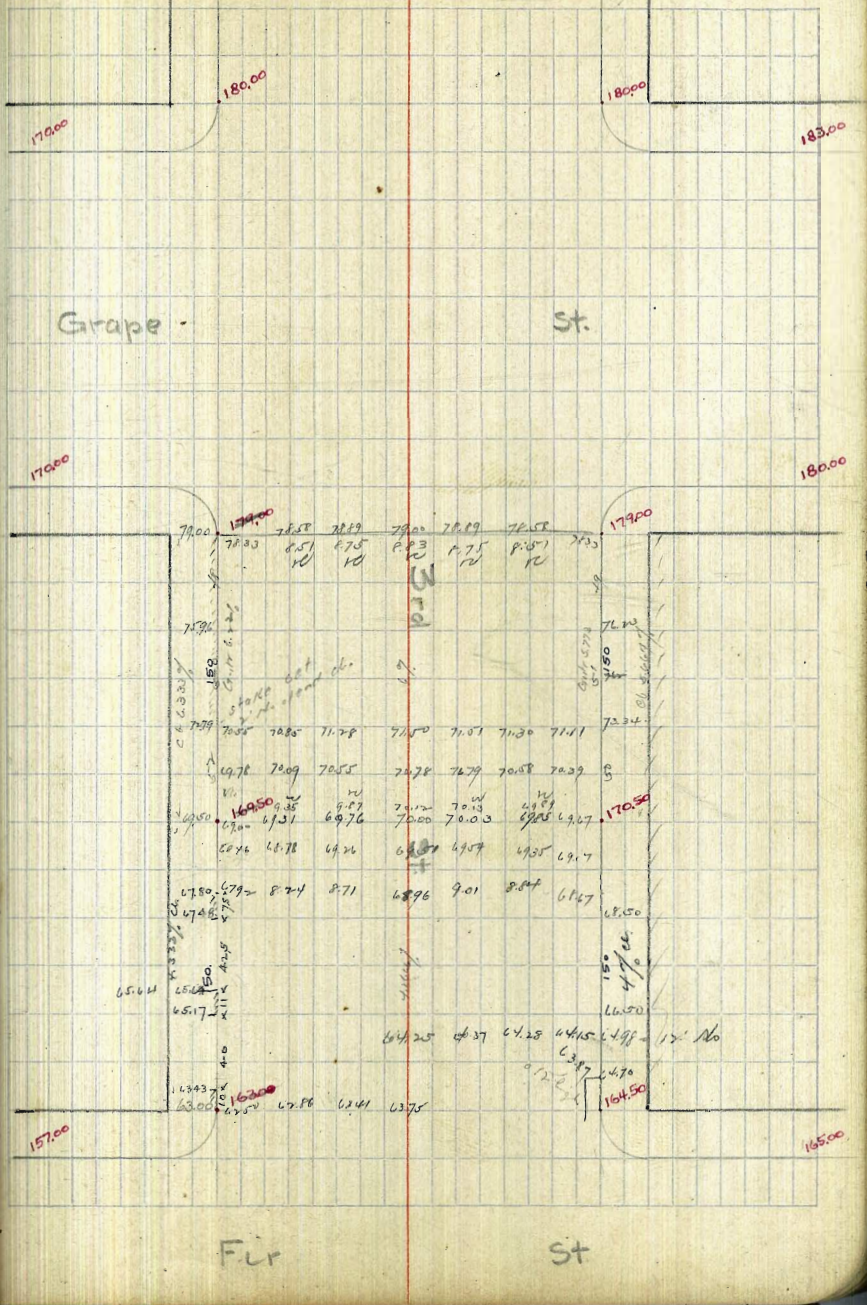 180.00 180.00
170.00 183.00
Grape St.
170.00 180.00
79.00 179.00 78.58 78.89 79.00 78.89 78.58 179.00
78.33 8.51 8.75 8.83 8.75 8.51 78.33
3rd
75.96
150 150
6.333%
6%
stake set
72.79 70.55 70.85 71.28 71.50 71.51 71.30 71.11 73.34
69.78 70.09 70.55 70.78 70.79 70.58 70.39
9.35 9.87 70.12 70.13 69.89
69.50 169.50 69.00 69.31 69.76 70.00 70.03 69.85 69.67 170.50
St
68.46 68.78 69.26 69.59 69.35 69.17
67.80 67.92 8.24 8.71 68.96 9.01 8.84 68.67
67.48 68.50
4.333% 150. 42.5 150 4% cl.
65.64
65.17 66.50
64.25 64.37 64.28 64.15 64.98 12' No
40 63.87
63.43 64.70
63.00 163.00 62.50 62.86 63.41 63.75 164.50
157.00 165.00
Fir St